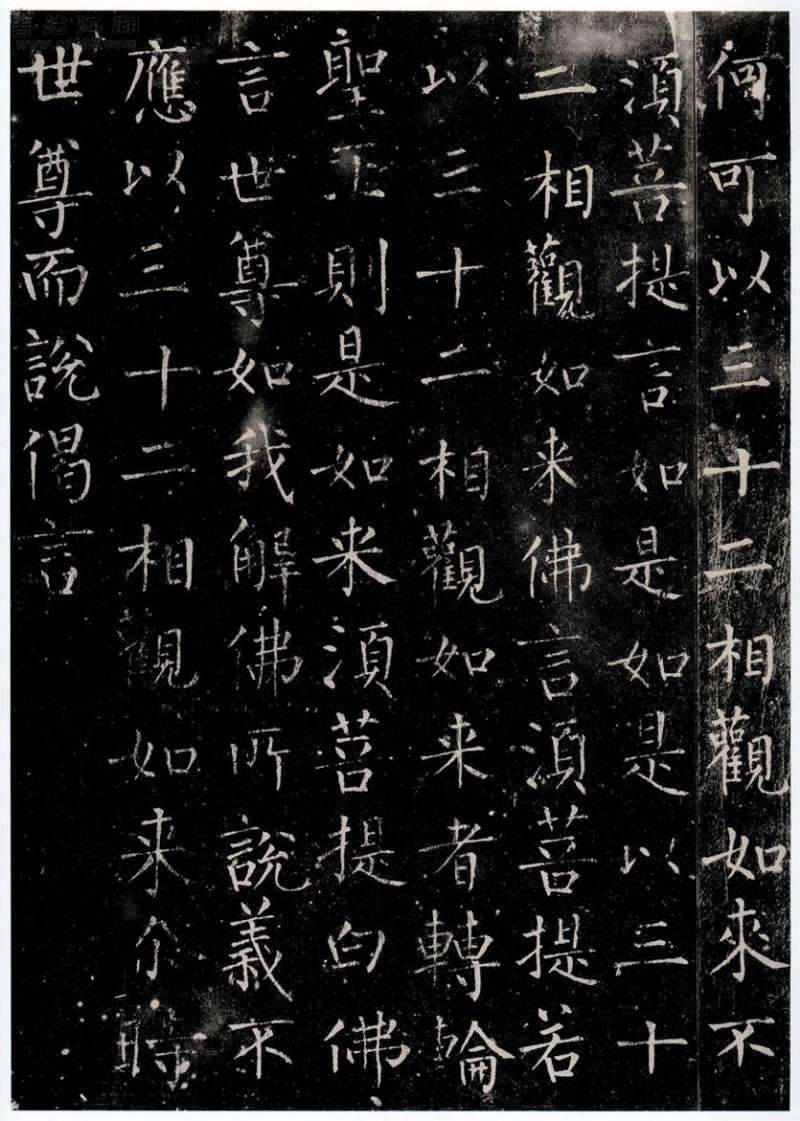 何可以三十二相觀如来不
須菩提言如是如是以三十
二相觀如来佛言須菩提若
以三十二相觀如来者轉輪
聖王則是如来須菩提白佛
言世尊如我解佛所說義不
應以三十二相觀如来尒時
世尊而說偈言